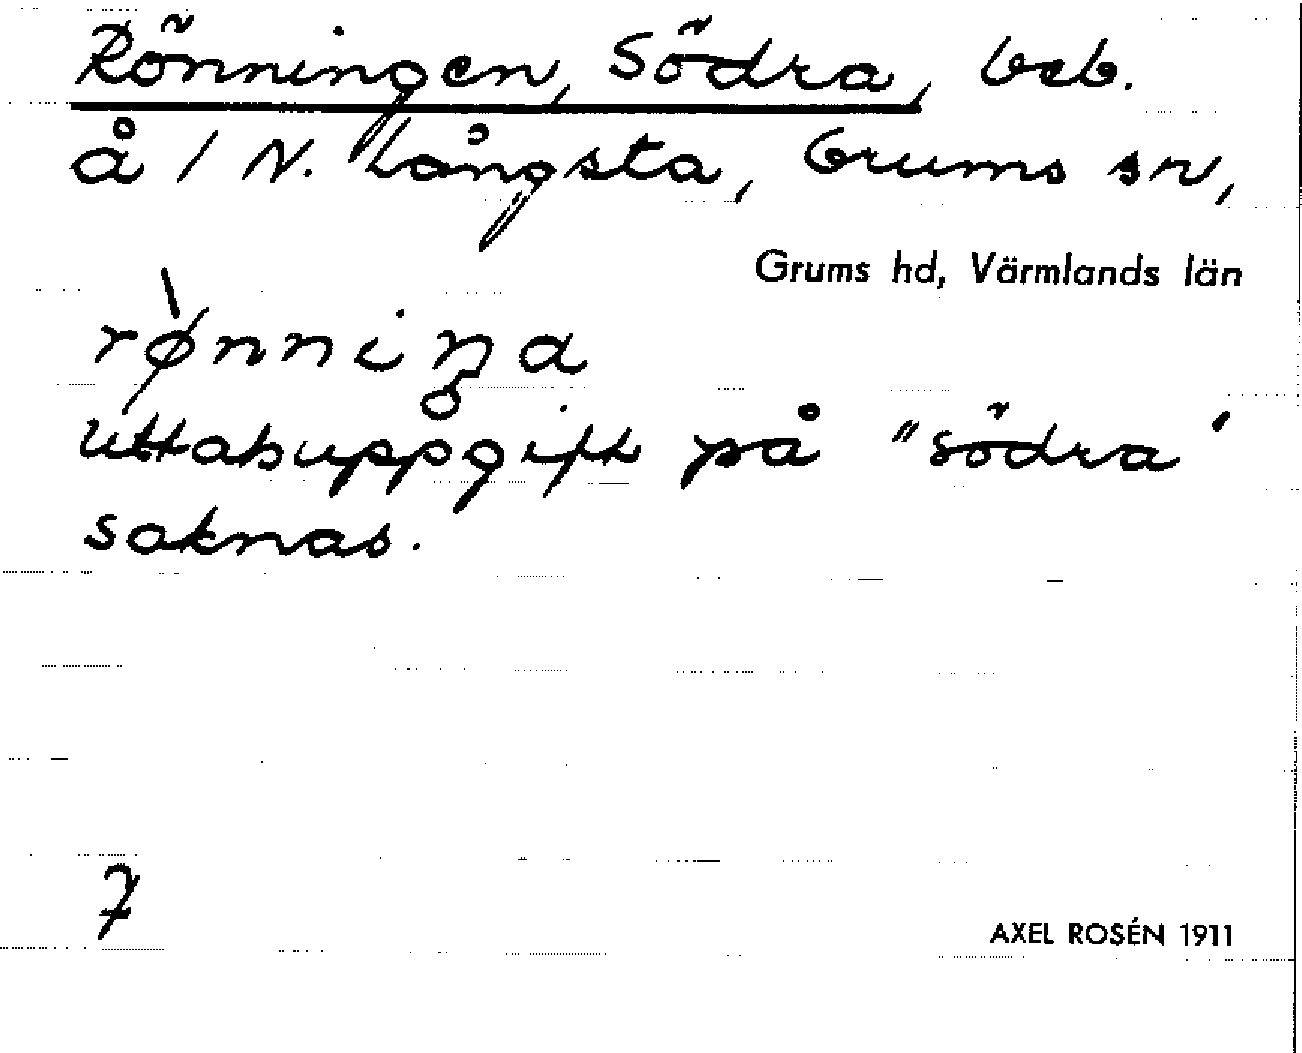 Rönningen, Södra, beb.
å 1 N. Långsta, Grums sn,
Grums hd, Värmlands län
rø̀nniŋa
uttalsuppgift på "södra"
saknas.
7
AXEL ROSÉN 1911